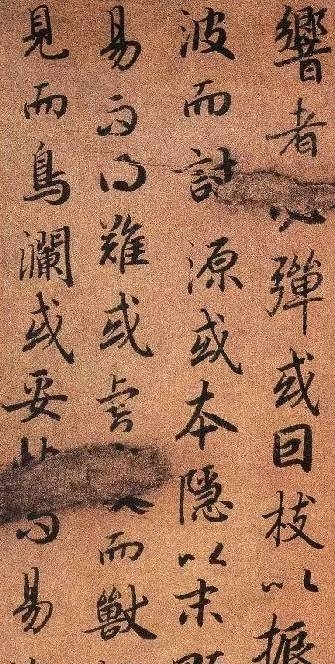 響者必彈或因枝以振
波而討源或本隱以末
易而得難或虎而獸
見而鳥瀾或妥而易